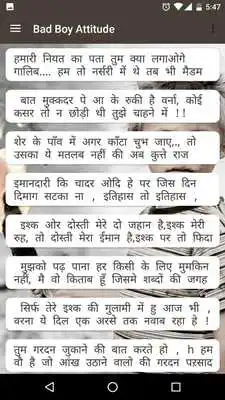 5:47
Bad Boy Attitude
हमारी नियत का पता तुम क्या लगाओगे
गालिब.... हम तो नर्सरी में थे तब भी मैडम
बात मुक्कदर पे आ के रुकी है वर्ना, कोई
कसर तो न छोड़ी थी तुझे चाहने में !!
शेर के पाँव में अगर काँटा चुभ जाए,., तो
उसका ये मतलब नहीं की अब कुत्ते राज
ईमानदारी कि चादर ओदि हे पर जिस दिन
दिमाग सटका ना , इतिहास तो इतिहास ,
इश्क ओर दोस्ती मेरे दो जहान है,इश्क मेरी
रुह, तो दोस्ती मेरा ईमान है,इश्क पर तो फिदा
मुझको पढ़ पाना हर किसी के लिए मुमकिन
नहीं, मै वो किताब हूँ जिसमे शब्दों की जगह
सिर्फ तेरे इश्क की गुलामी में हु आज भी ,
वरना ये दिल एक अरसे तक नवाब रहा हे !
तुम गरदन जुकाने की बात करते हो , h हम
वो है जो आंख उठाने वालो की गरदन परसाद